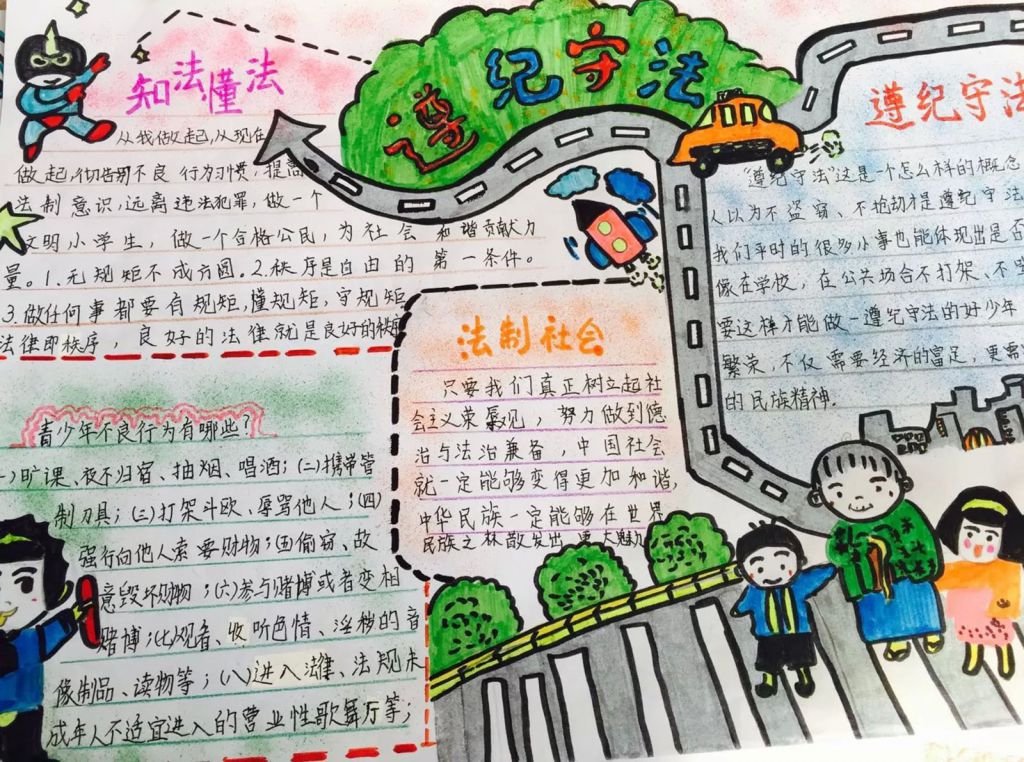 遵纪守法
知法懂法
从我做起,从现在
做起,彻告别不良行为习惯,提高
法制意识,远离违法犯罪,做一个
文明小学生,做一个合格公民,为社会和谐贡献力
量。1.无规矩不成方圆。2.秩序是自由的第一条件。
3.做任何事都要有规矩,懂规矩,守规矩
法律即秩序,良好的法律就是良好的秩序
青少年不良行为有哪些?
一)旷课、夜不归宿、抽烟、喝酒;(二)携带管
制刀具;(三)打架斗欧、辱骂他人;(四)
强行向他人索要财物;(五)偷窃、故
意毁坏财物;(六)参与赌博或者变相
赌博;(七)观看、收听色情、淫秽的音
像制品、读物等;(八)进入法律、法规未
成年人不适宜进入的营业性歌舞厅等;
法制社会
只要我们真正树立起社
会主义荣辱见,努力做到德
治与法治兼备,中国社会
就一定能够变得更加和谐,
中华民族一定能够在世界
民族之林散发出更大魅力
遵纪守法
"遵纪守法"这是一个怎么样的概念
人以为不盗窃、不抢劫才是遵纪守法
我们平时的很多小事也能体现出是否
像在学校,在公共场合不打架、不
要这样才能做一遵纪守法的好少年
繁荣,不仅需要经济的富足,更需
的民族精神.